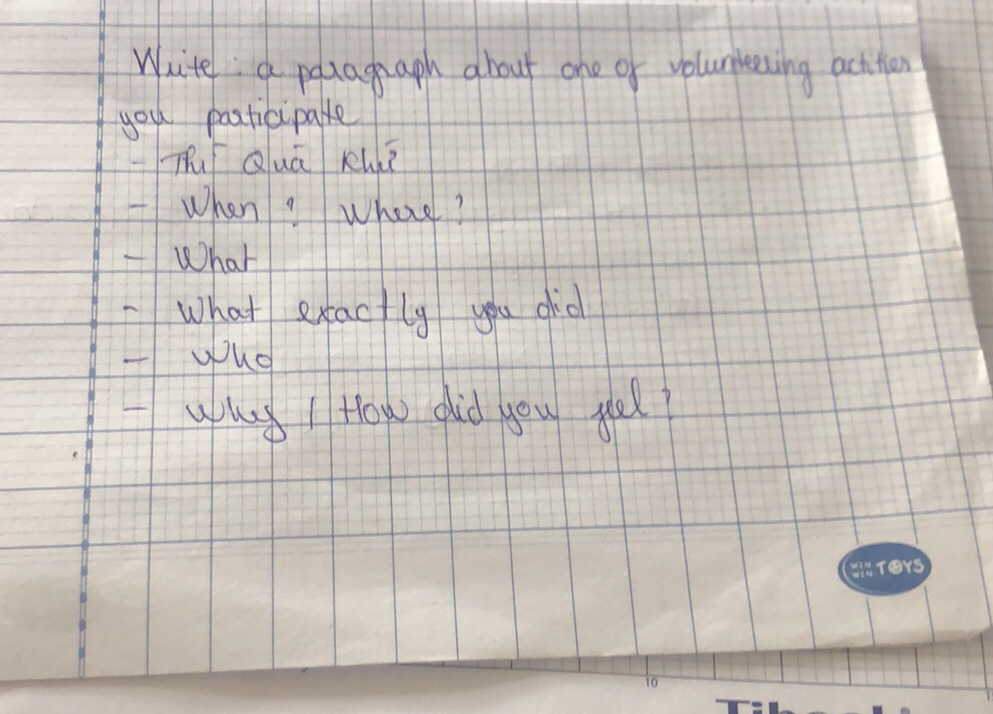 Write : a paragraph about one of volunteering activities
you participate
- Thì Quá Khứ
- When ? Where ?
- What
- What exactly you did
- Who
- Why / How did you feel ?
WIN WIN TOYS
10